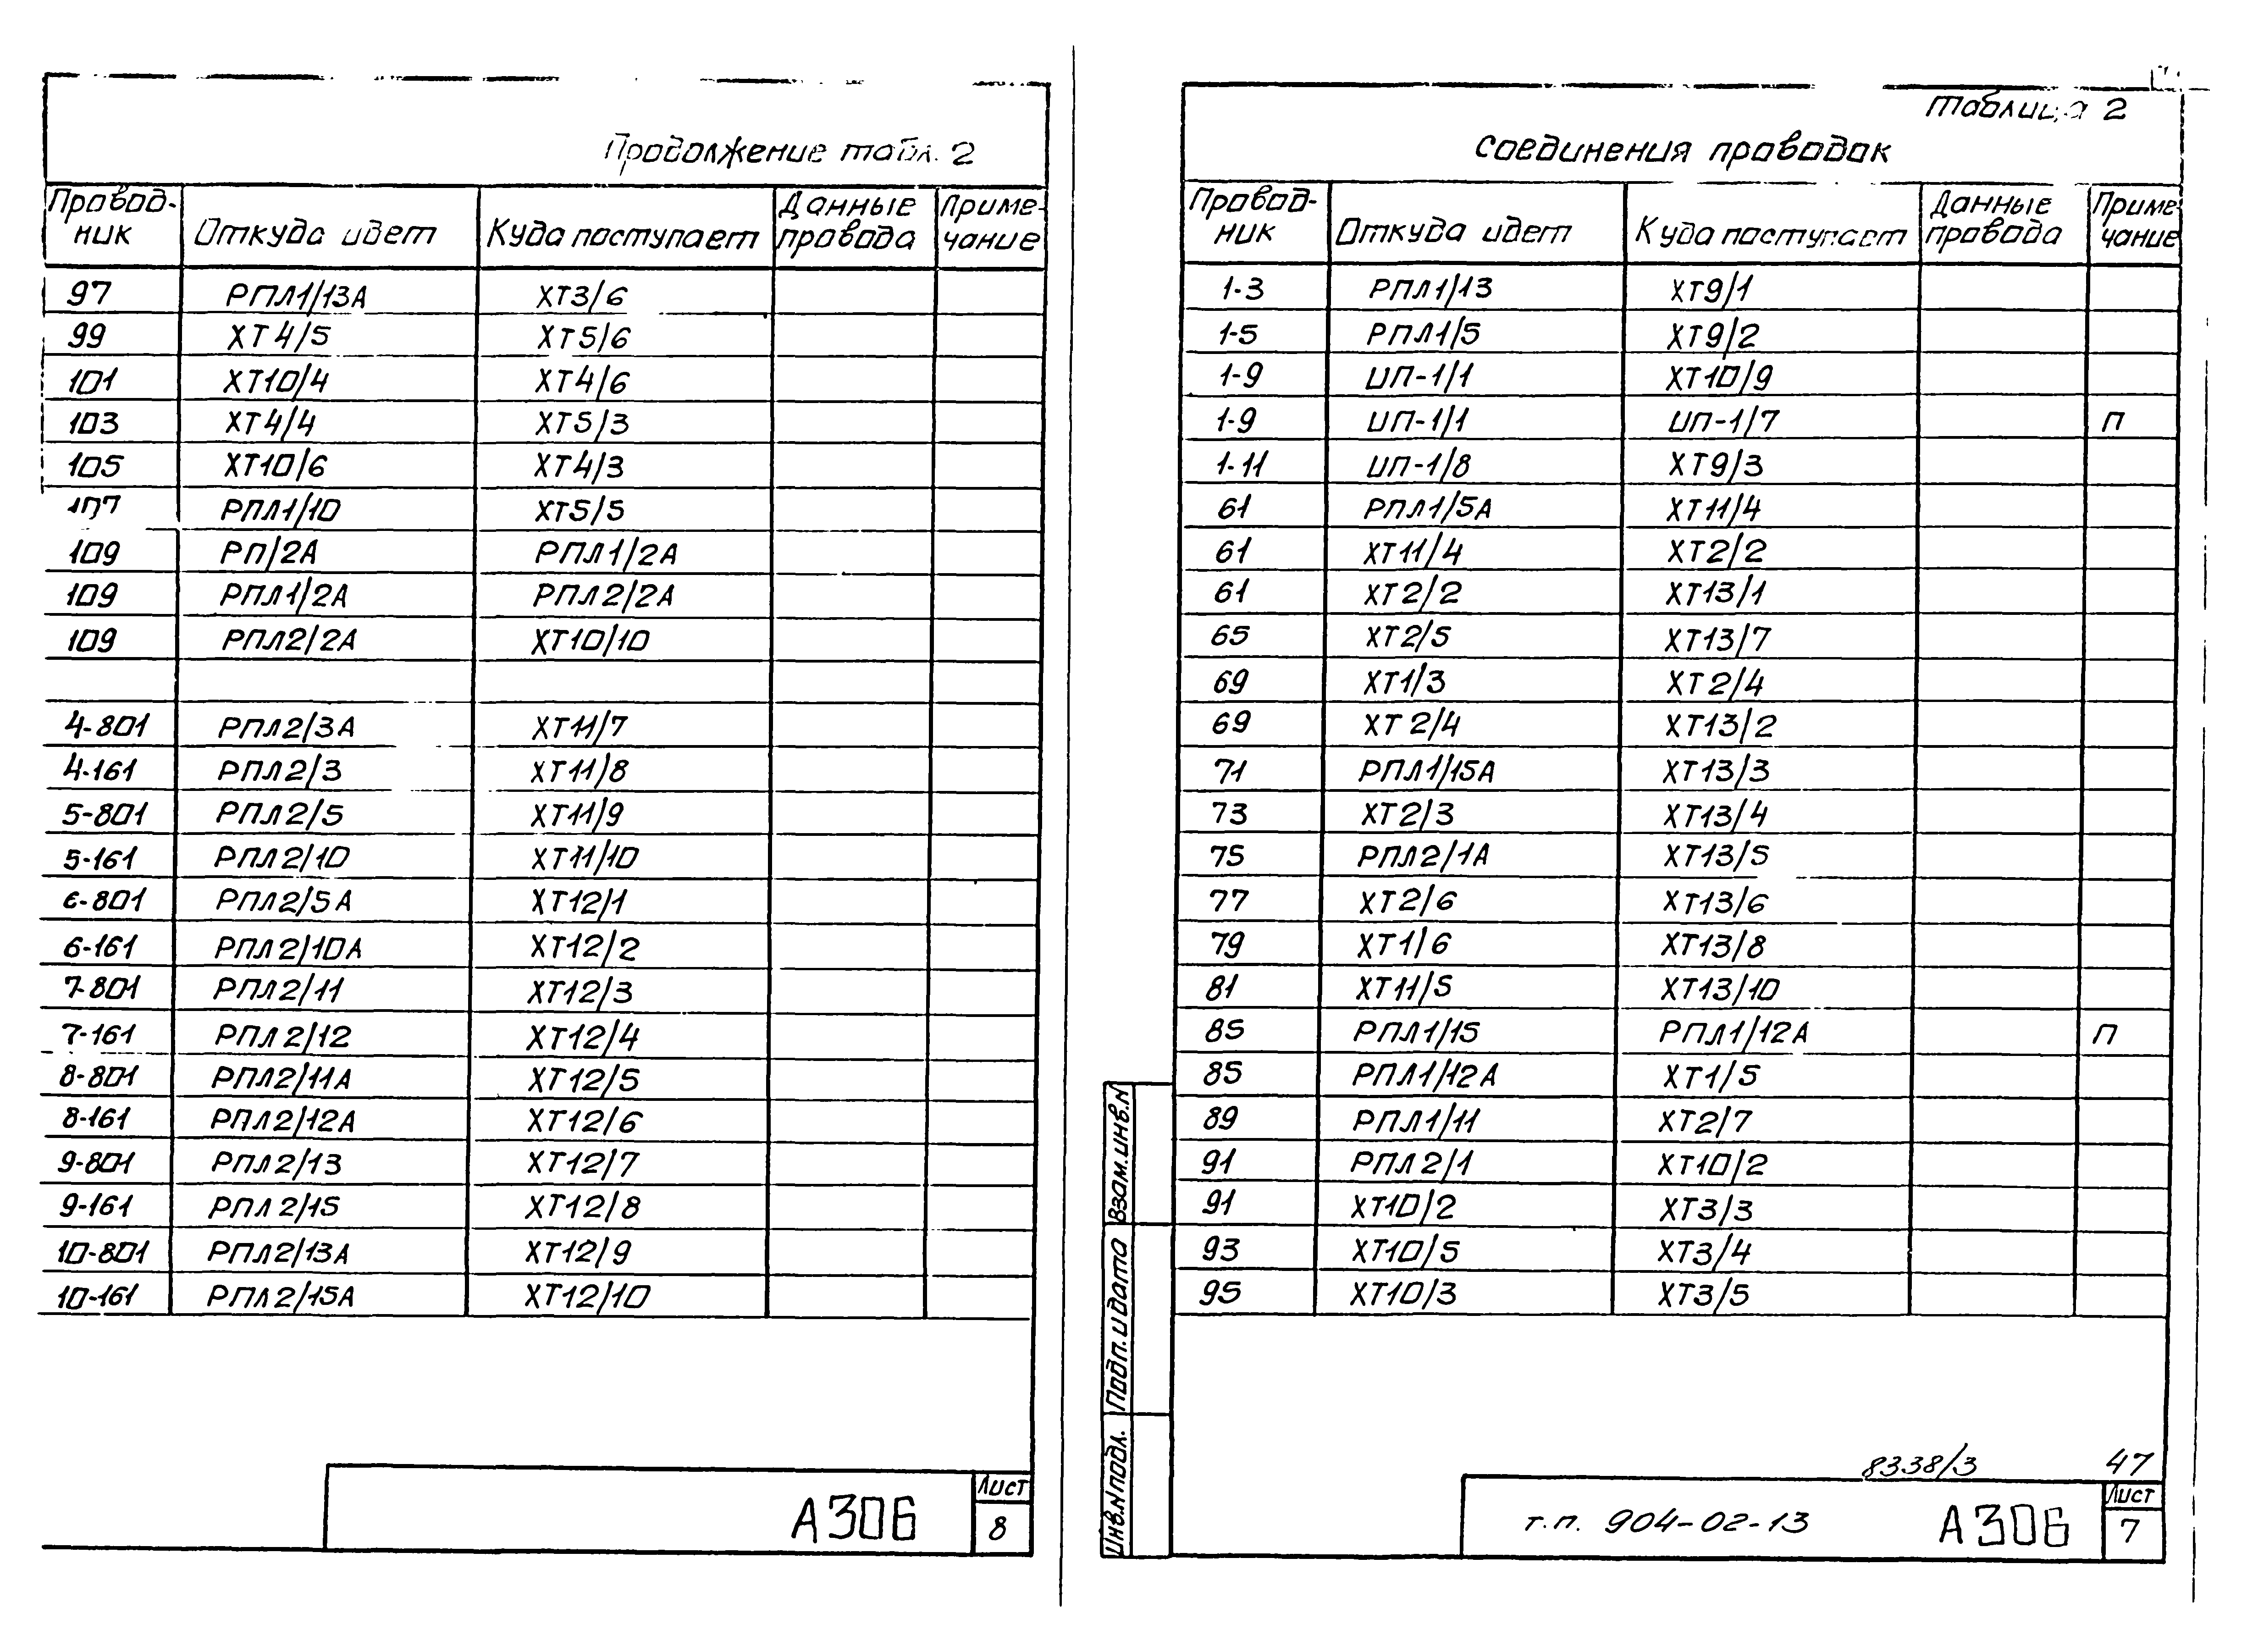 Продолжение табл. 2
Провод-ник Откуда идет Куда поступает Данные провода Приме-чание
97 РПЛ1/13А ХТ3/6
99 ХТ4/5 ХТ5/6
101 ХТ10/4 ХТ4/6
103 ХТ4/4 ХТ5/3
105 ХТ10/6 ХТ4/3
107 РПЛ1/10 ХТ5/5
109 РП/2А РПЛ1/2А
109 РПЛ1/2А РПЛ2/2А
109 РПЛ2/2А ХТ10/10
4-801 РПЛ2/3А ХТ11/7
4-161 РПЛ2/3 ХТ11/8
5-801 РПЛ2/5 ХТ11/9
5-161 РПЛ2/10 ХТ11/10
6-801 РПЛ2/5А ХТ12/1
6-161 РПЛ2/10А ХТ12/2
7-801 РПЛ2/11 ХТ12/3
7-161 РПЛ2/12 ХТ12/4
8-801 РПЛ2/11А ХТ12/5
8-161 РПЛ2/12А ХТ12/6
9-801 РПЛ2/13 ХТ12/7
9-161 РПЛ2/15 ХТ12/8
10-801 РПЛ2/13А ХТ12/9
10-161 РПЛ2/15А ХТ12/10
А306
Лист
8
Таблица 2
Соединения проводок
Провод-ник Откуда идет Куда поступает Данные провода Приме-чание
1-3 РПЛ1/13 ХТ9/1
1-5 РПЛ1/5 ХТ9/2
1-9 ИП-1/1 ХТ10/9
1-9 ИП-1/1 ИП-1/7 П
1-11 ИП-1/8 ХТ9/3
61 РПЛ1/5А ХТ11/4
61 ХТ11/4 ХТ2/2
61 ХТ2/2 ХТ13/1
65 ХТ2/5 ХТ13/7
69 ХТ1/3 ХТ2/4
69 ХТ2/4 ХТ13/2
71 РПЛ1/15А ХТ13/3
73 ХТ2/3 ХТ13/4
75 РПЛ2/1А ХТ13/5
77 ХТ2/6 ХТ13/6
79 ХТ1/6 ХТ13/8
81 ХТ11/5 ХТ13/10
85 РПЛ1/15 РПЛ1/12А П
85 РПЛ1/12А ХТ1/5
89 РПЛ1/11 ХТ2/7
91 РПЛ2/1 ХТ10/2
91 ХТ10/2 ХТ3/3
93 ХТ10/5 ХТ3/4
95 ХТ10/3 ХТ3/5
Взам.инв.N
Подп.и дата
Инв.N подл.
8338/3 47
т.п. 904-02-13 А306
Лист
7